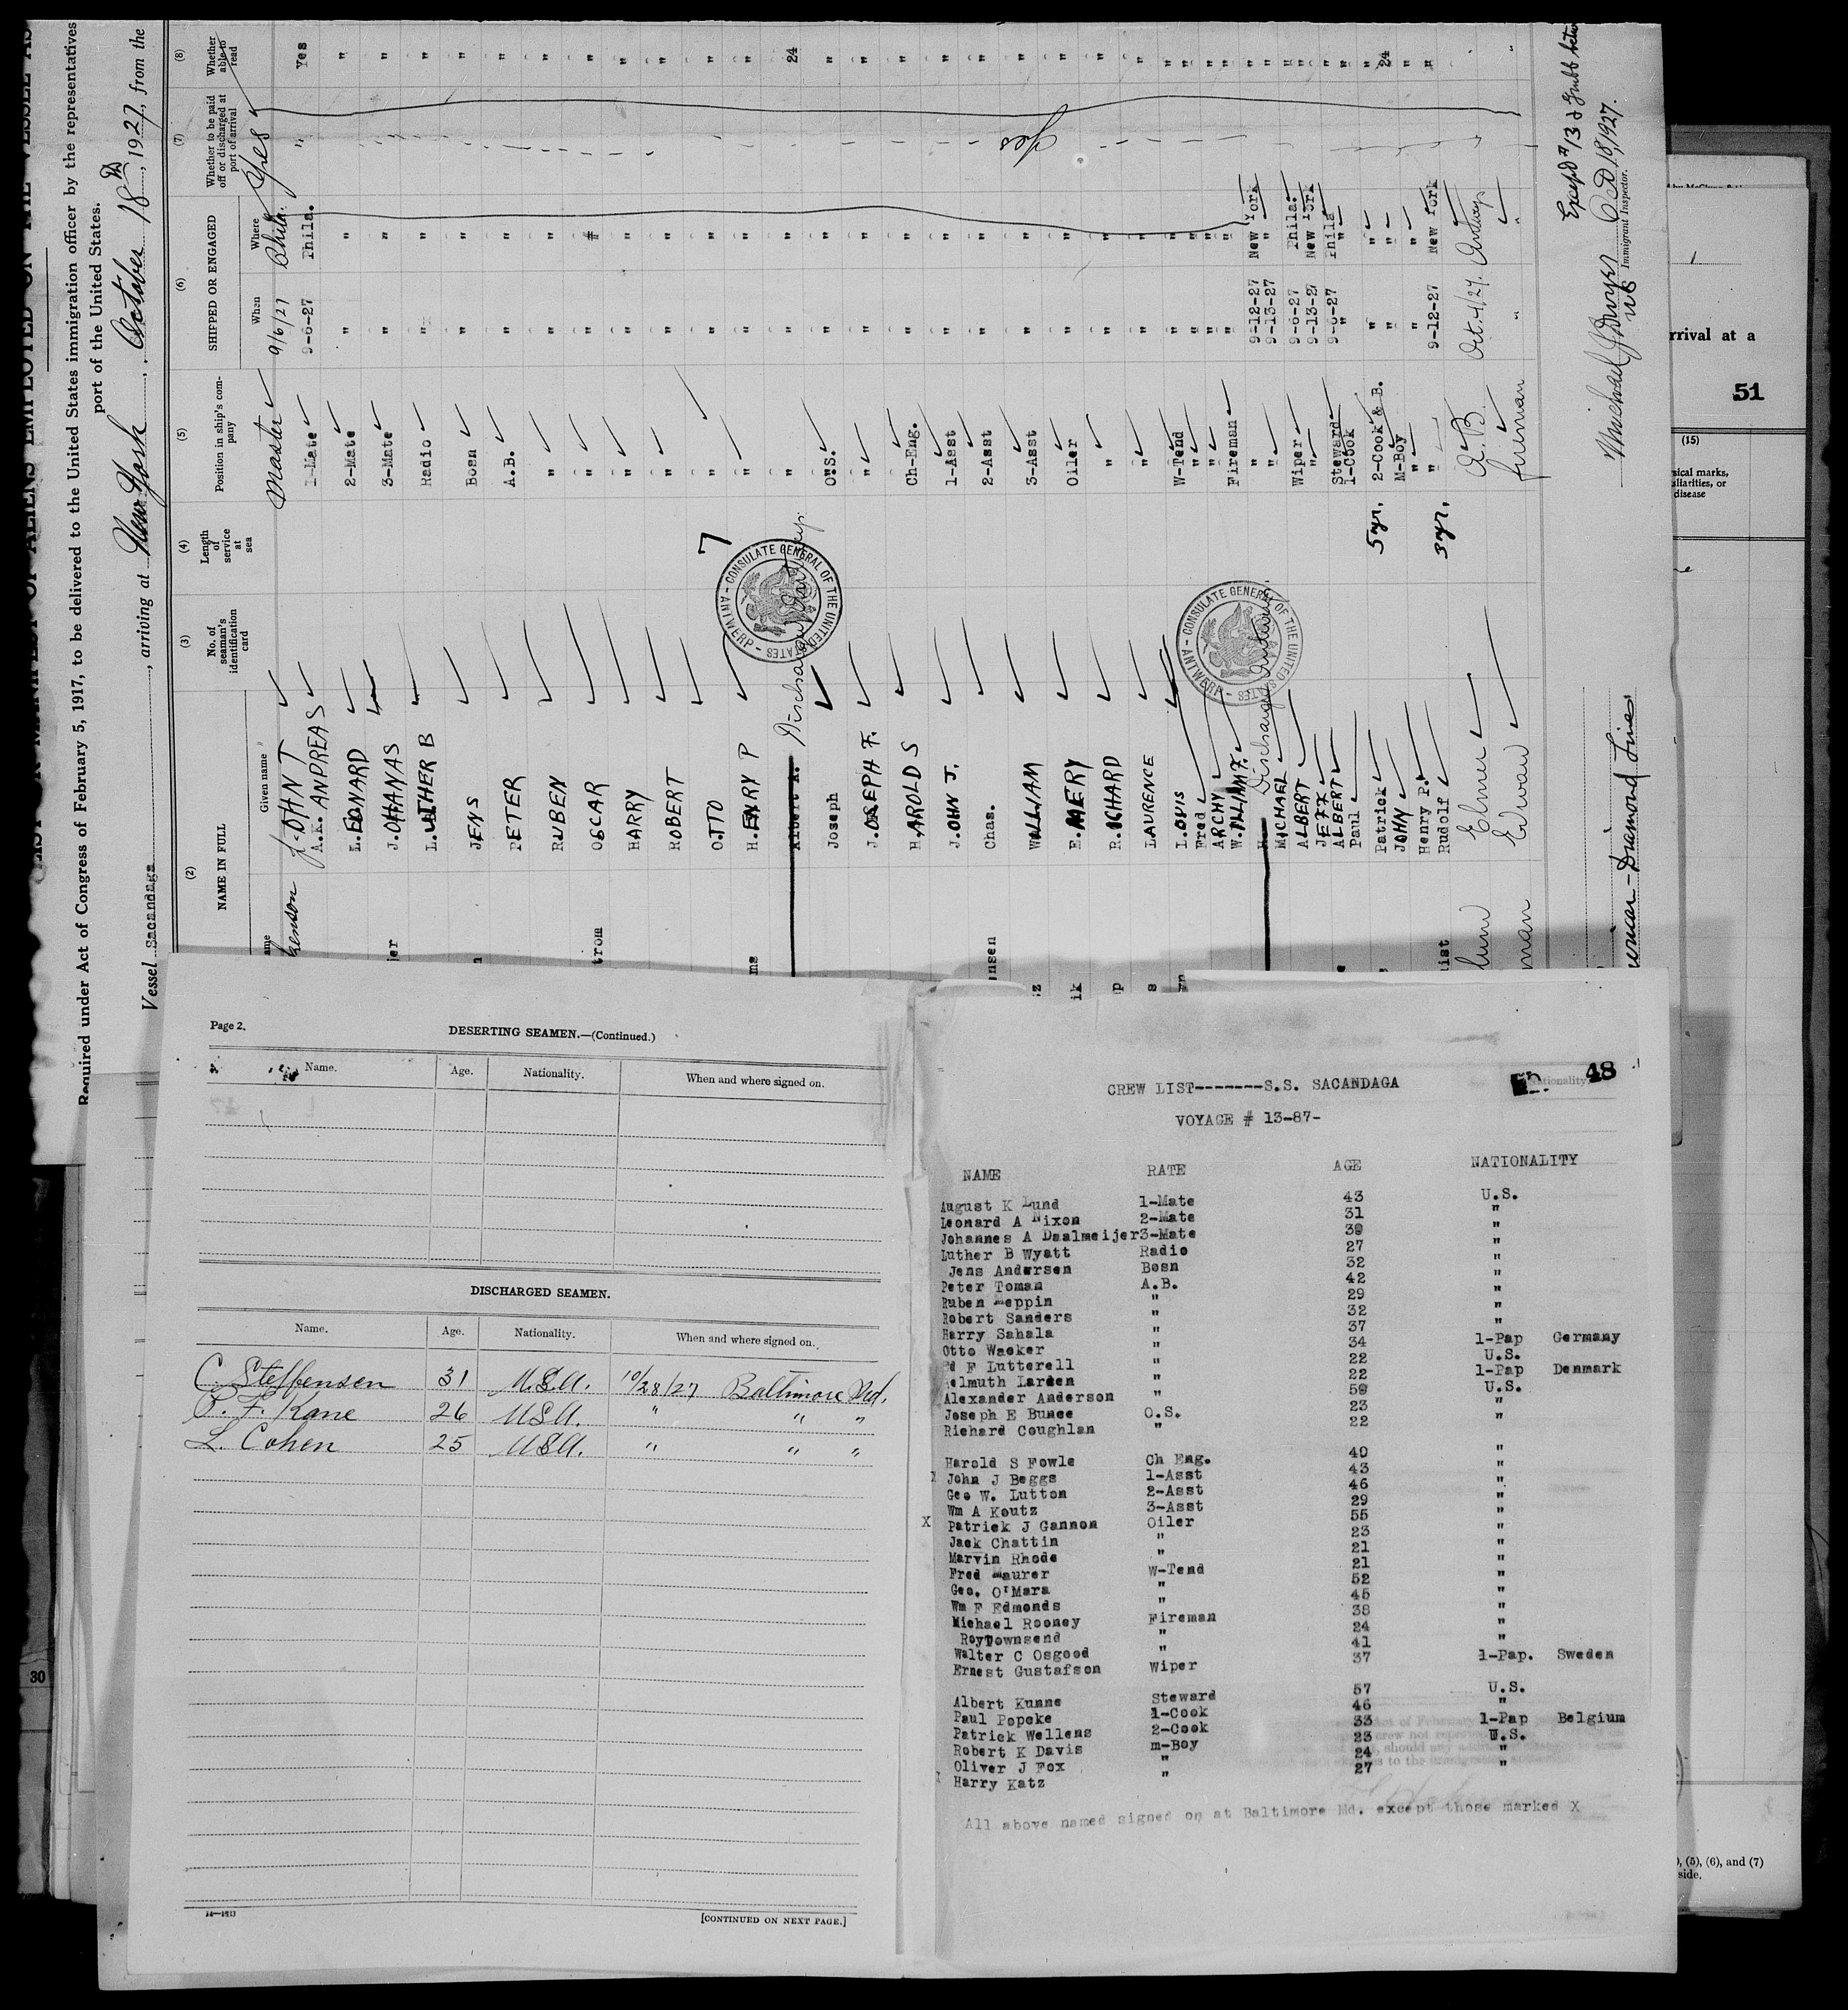 LIST OR MANIFEST OF ALIENS EMPLOYED ON THE VESSEL AS
Required under Act of Congress of February 5, 1917, to be delivered to the United States immigration officer by the representatives
port of the United States.
Vessel Sacandaga, arriving at New York, October 18th, 1927, from the
(2) (3) (4) (5) (6) (7) (8)
NAME IN FULL
Given name
No. of seaman's identification card
Length of service at sea
Position in ship's company
SHIPPED OR ENGAGED
When Where
Whether to be paid off or discharged at port of arrival
Whether able to read
JOHN T Master 9/6/27 Phila. Yes
A.K. ANDREAS 1-Mate 9-6-27 Phila. " Yes
L.EONARD 2-Mate " " "
J.OHANAS 3-Mate " " "
L.UTHER B Radio " " "
JENS Bosn " " "
PETER A.B. " " "
RUBEN " " " "
OSCAR " " " "
HARRY " " " "
ROBERT " " " "
OTTO " " " "
H.ENRY P " " " "
Albert A. Discharged " " " 24
Joseph O.S. " " "
J.OSEPH F. " " " "
HAROLD S Ch-Eng. " " "
J.OHN J. 1-Asst " " "
Chas. 2-Asst " " "
WILLIAM 3-Asst " " "
E.MERY Oiler " " "
R.ICHARD " " " "
LAURENCE " " " "
L.OUIS W-Tend " " "
Fred " " " "
ARCHY " " " "
W.ILLIAM F. Fireman " " "
H. Discharged Antwerp " 9-12-27 New York "
MICHAEL " 9-13-27 " "
ALBERT Wiper 9-6-27 Phila. "
JEFF " 9-13-27 New York "
ALBERT Steward 9-6-27 Phila "
Paul 1-Cook " " "
Patrick 5 yr. 2-Cook & B. " " 24
JOHN M-Boy " " "
Henry P. " " " "
Rudolf 3 yr. " 9-12-27 New York "
Elmer A.B. Oct. 4/27. Antwerp
Edwan Fireman " " "
Yes
7
CONSULATE GENERAL OF THE UNITED STATES - ANTWERP -
CONSULATE GENERAL OF THE UNITED STATES - ANTWERP -
Except #13 & Grubb
Michael J Dwyer Oct 18, 1927.
Immigrant Inspector.
Diamond Lines
rrival at a
51
(15)
sical marks,
uliarities, or
disease
30
), (5), (6), and (7)
side.
Page 2.
DESERTING SEAMEN.—(Continued.)
Name. Age. Nationality. When and where signed on.
DISCHARGED SEAMEN.
Name. Age. Nationality. When and where signed on.
C. Steffensen 31 U.S.A. 10/28/27 Baltimore Md.
P. F. Kane 26 U.S.A. " " "
L. Cohen 25 U.S.A. " " "
[CONTINUED ON NEXT PAGE.]
48
CREW LIST-------S.S. SACANDAGA
VOYAGE # 13-87-
NAME RATE AGE NATIONALITY
August K Lund 1-Mate 43 U.S.
Leonard A Nixon 2-Mate 31 "
Johannes A Daalmeijer 3-Mate 30 "
Luther B Wyatt Radio 27 "
Jens Andersen Bosn 32 "
Peter Toman A.B. 42 "
Ruben Meppin " 29 "
Robert Sanders " 32 "
Harry Sahala " 37 "
Otto Wacker " 34 1-Pap Germany
Ed F Lutterell " 22 U.S.
Helmuth Larden " 22 1-Pap Denmark
Alexander Anderson " 50 U.S.
Joseph E Bunce O.S. 23 "
Richard Coughlan " 22 "
Harold S Fowle Ch Eng. 40 "
X John J Beggs 1-Asst 43 "
Geo W. Lutton 2-Asst 46 "
Wm A Koutz 3-Asst 29 "
X Patrick J Gannon Oiler 55 "
Jack Chattin " 23 "
Marvin Rhode " 21 "
Fred Maurer W-Tend 21 "
Geo. O'Mara " 52 "
Wm F Edmonds " 45 "
Michael Rooney Fireman 38 "
Roy Townsend " 24 "
Walter C Osgood " 41 "
Ernest Gustafson Wiper 37 1-Pap. Sweden
Albert Kunne Steward 57 U.S.
Paul Popcke 1-Cook 46 "
Patrick Wellens 2-Cook 33 1-Pap Belgium
Robert K Davis m-Boy 23 U.S.
Oliver J Fox " 24 "
X Harry Katz " 27 "
All above named signed on at Baltimore Md. except those marked X